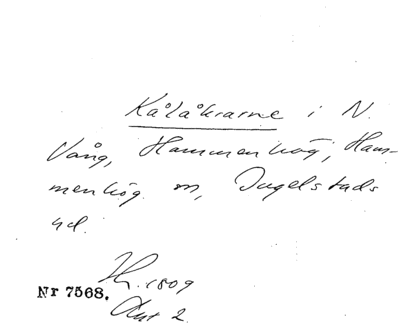 Kålåkrarne i N.
Vång, Hammenhög, Ham-
menhög sn, Ingelstads
hd.
1809
Nr 7568.
Akt 2.